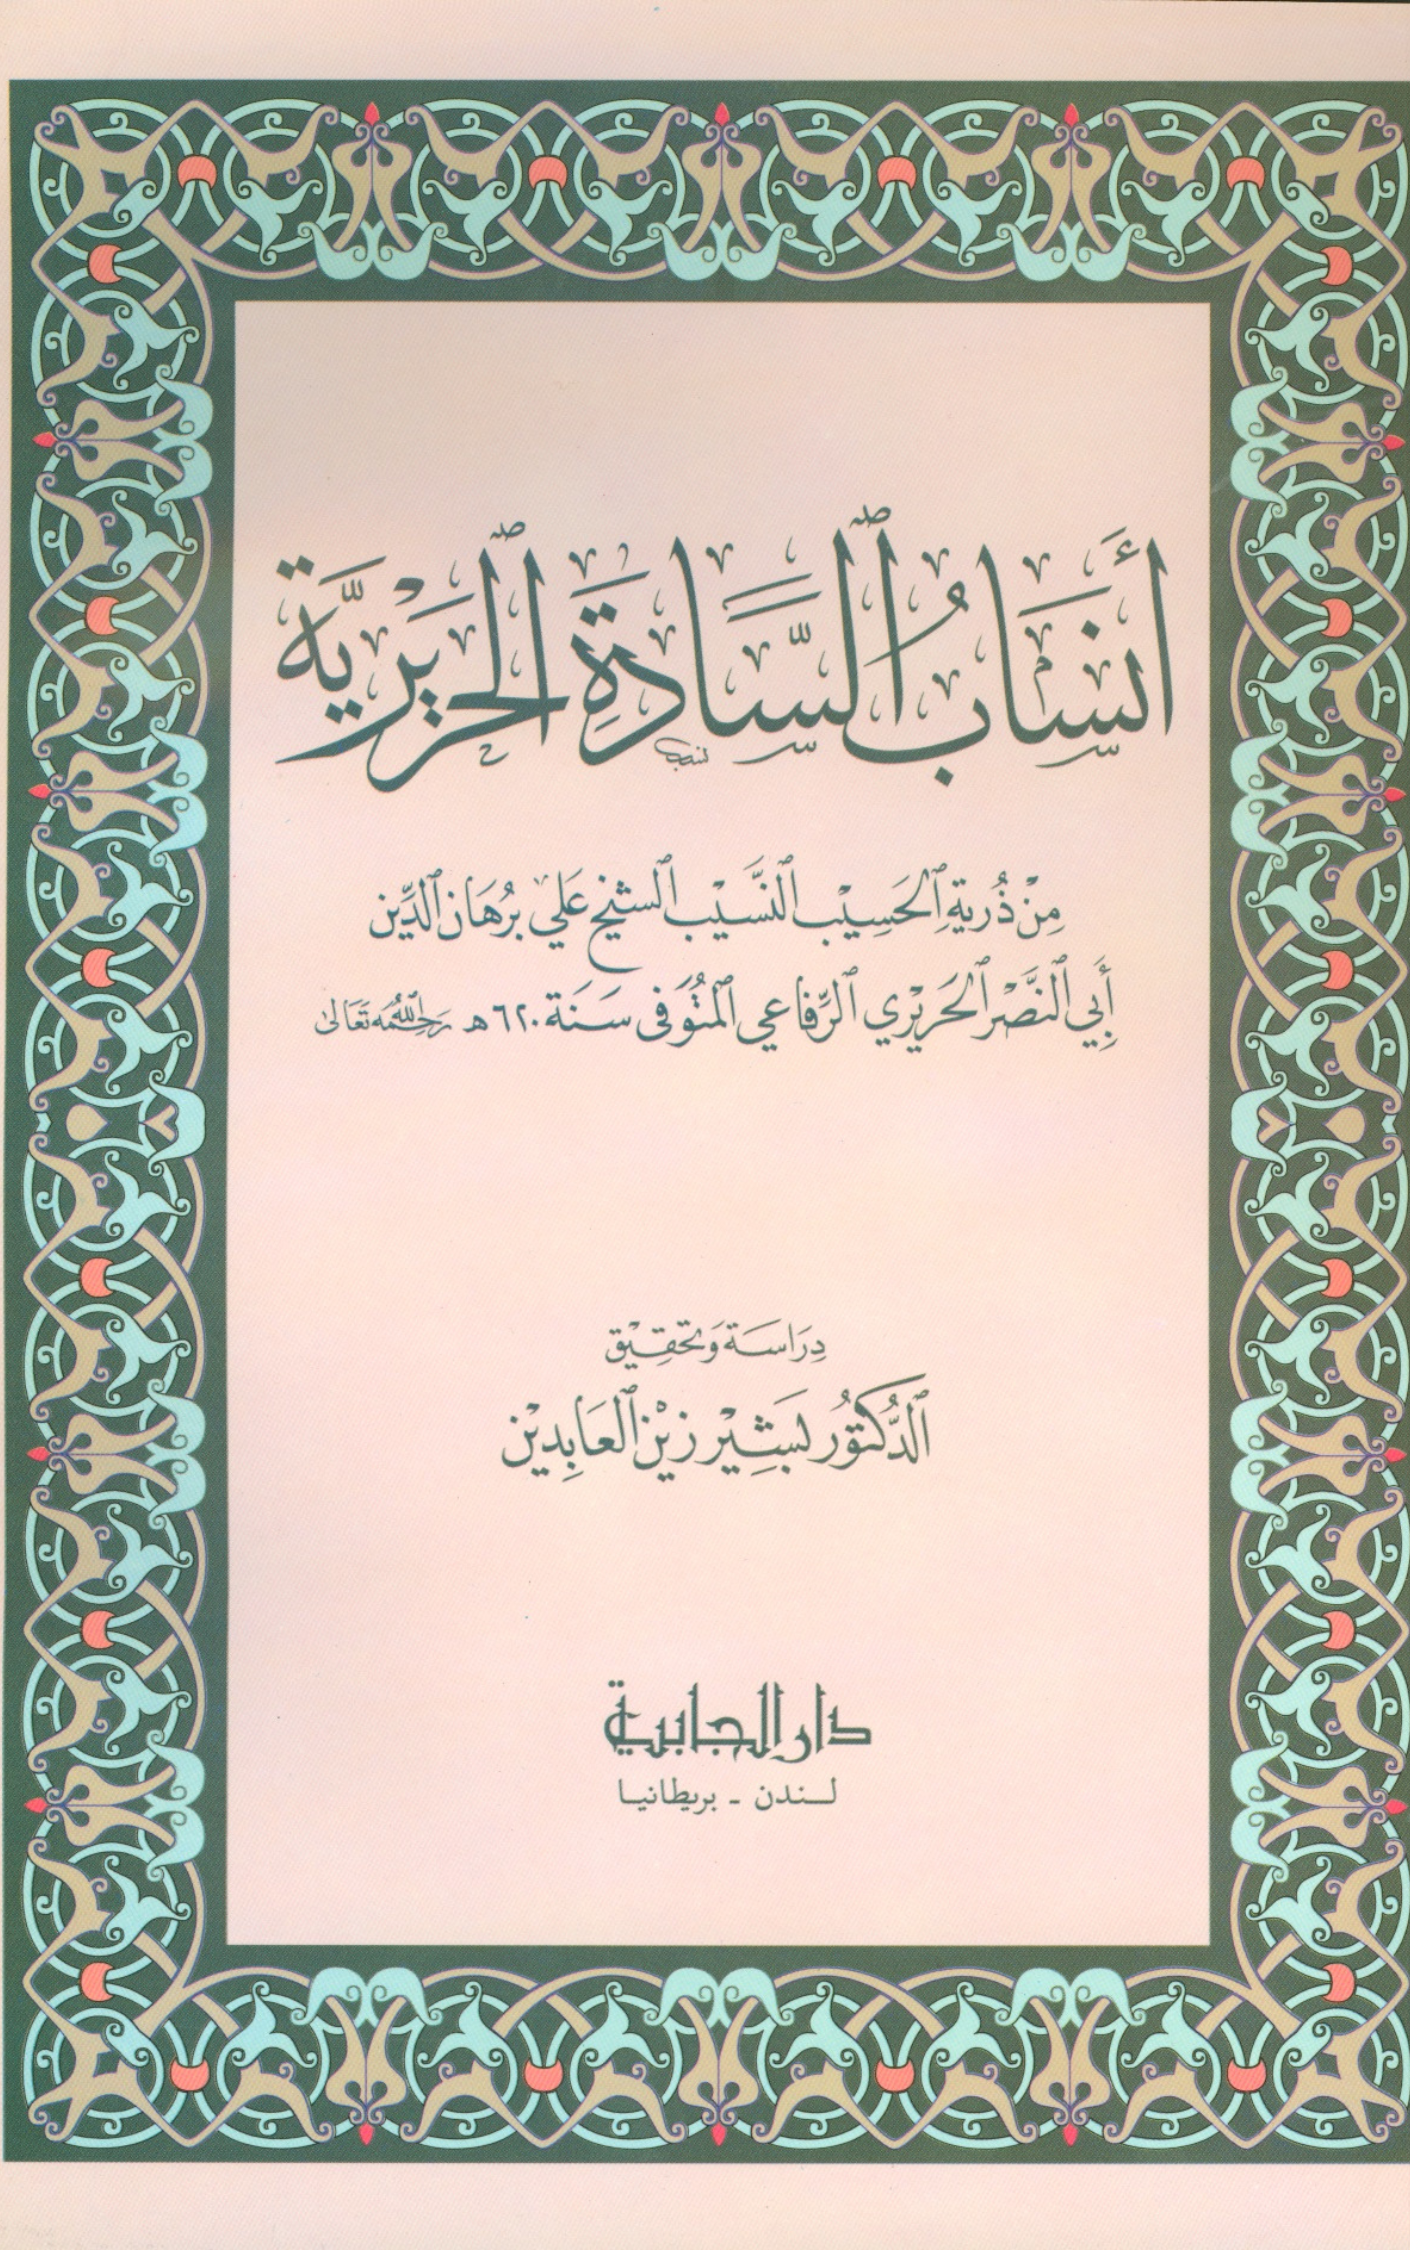 أَنْسَابُ السَّادَةِ الحَرِيْرِيَّة
مِنْ ذُرِيةِ الحَسِيْب النَّسَيْب الشيْخ عَلي بُرْهَان الدِّين
أَبِي النَّصْر الحَرِيْرِي الرِّفاعي المُتُوَفى سَنَة ٦٢٠ هـ رَحِمَهُ اللهُ تَعَالى
دِرَاسَة وَتحَقِيْق
الدُّكتوُر بَشِيْر زيْن العَابِدِيْن
دار الجابية
لندن - بريطانيا